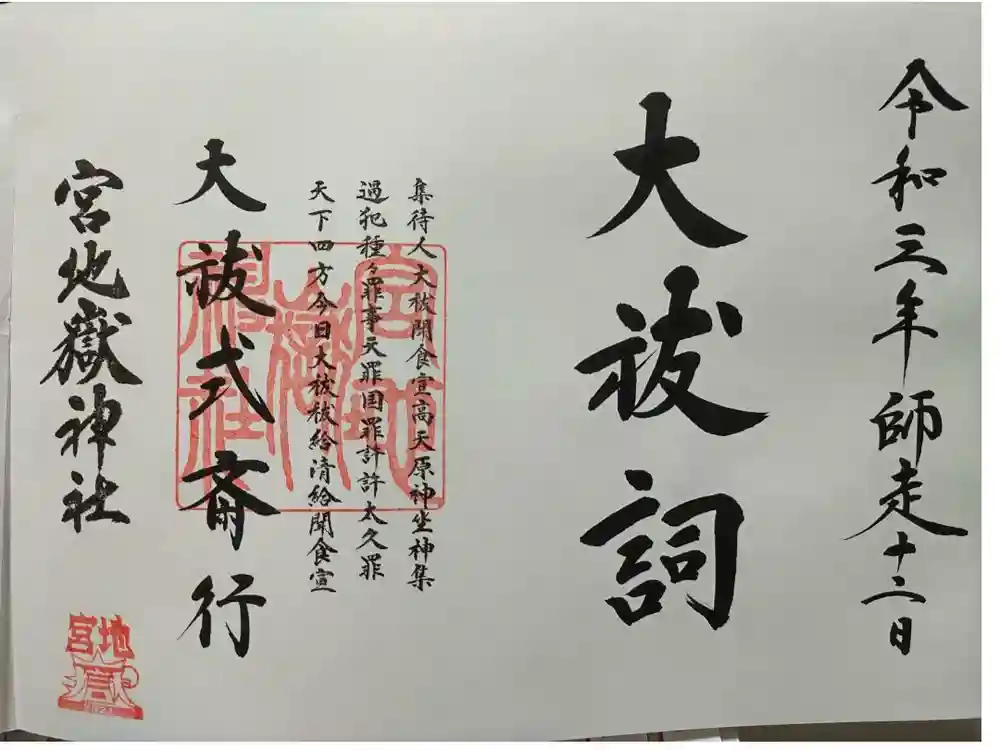 令和三年師走十二日
大祓詞
集待人大祓聞食宣高天原神坐神集
過犯種々罪事天罪国罪許許太久罪
天下四方今日大祓祓給清給聞食宣
大祓式斎行
宮地嶽神社
宮地嶽神社
宮地
嶽